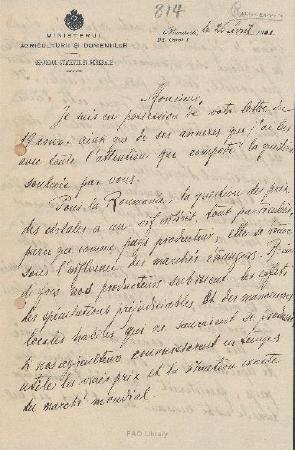 814
Roumanie
MINISTERUL
AGRICULTURII ȘI DOMENIILOR
SERVICIUL STATISTICEI GENERALE
le 25 Avril 1901
Monsieur,
Je suis en possession de votre lettre du
ainsi que de ses annexes que j'ai lues
avec toute l'attention que comporte la question
soulevée par vous.
Pour la Roumanie, la question des prix
des céréales a un vif intérêt tout particulier,
parce que comme pays producteur, elle se trouve
sous l'influence des marchés étrangers. Bien
de fois nos producteurs subissent les effets
des spéculations préjudiciables et des manoeuvres
locales habiles que ne sauraient se produire
si nos agriculteurs connaissaient en temps
utile les vrais prix et la situation exacte
du marché mondial.
FAO Library